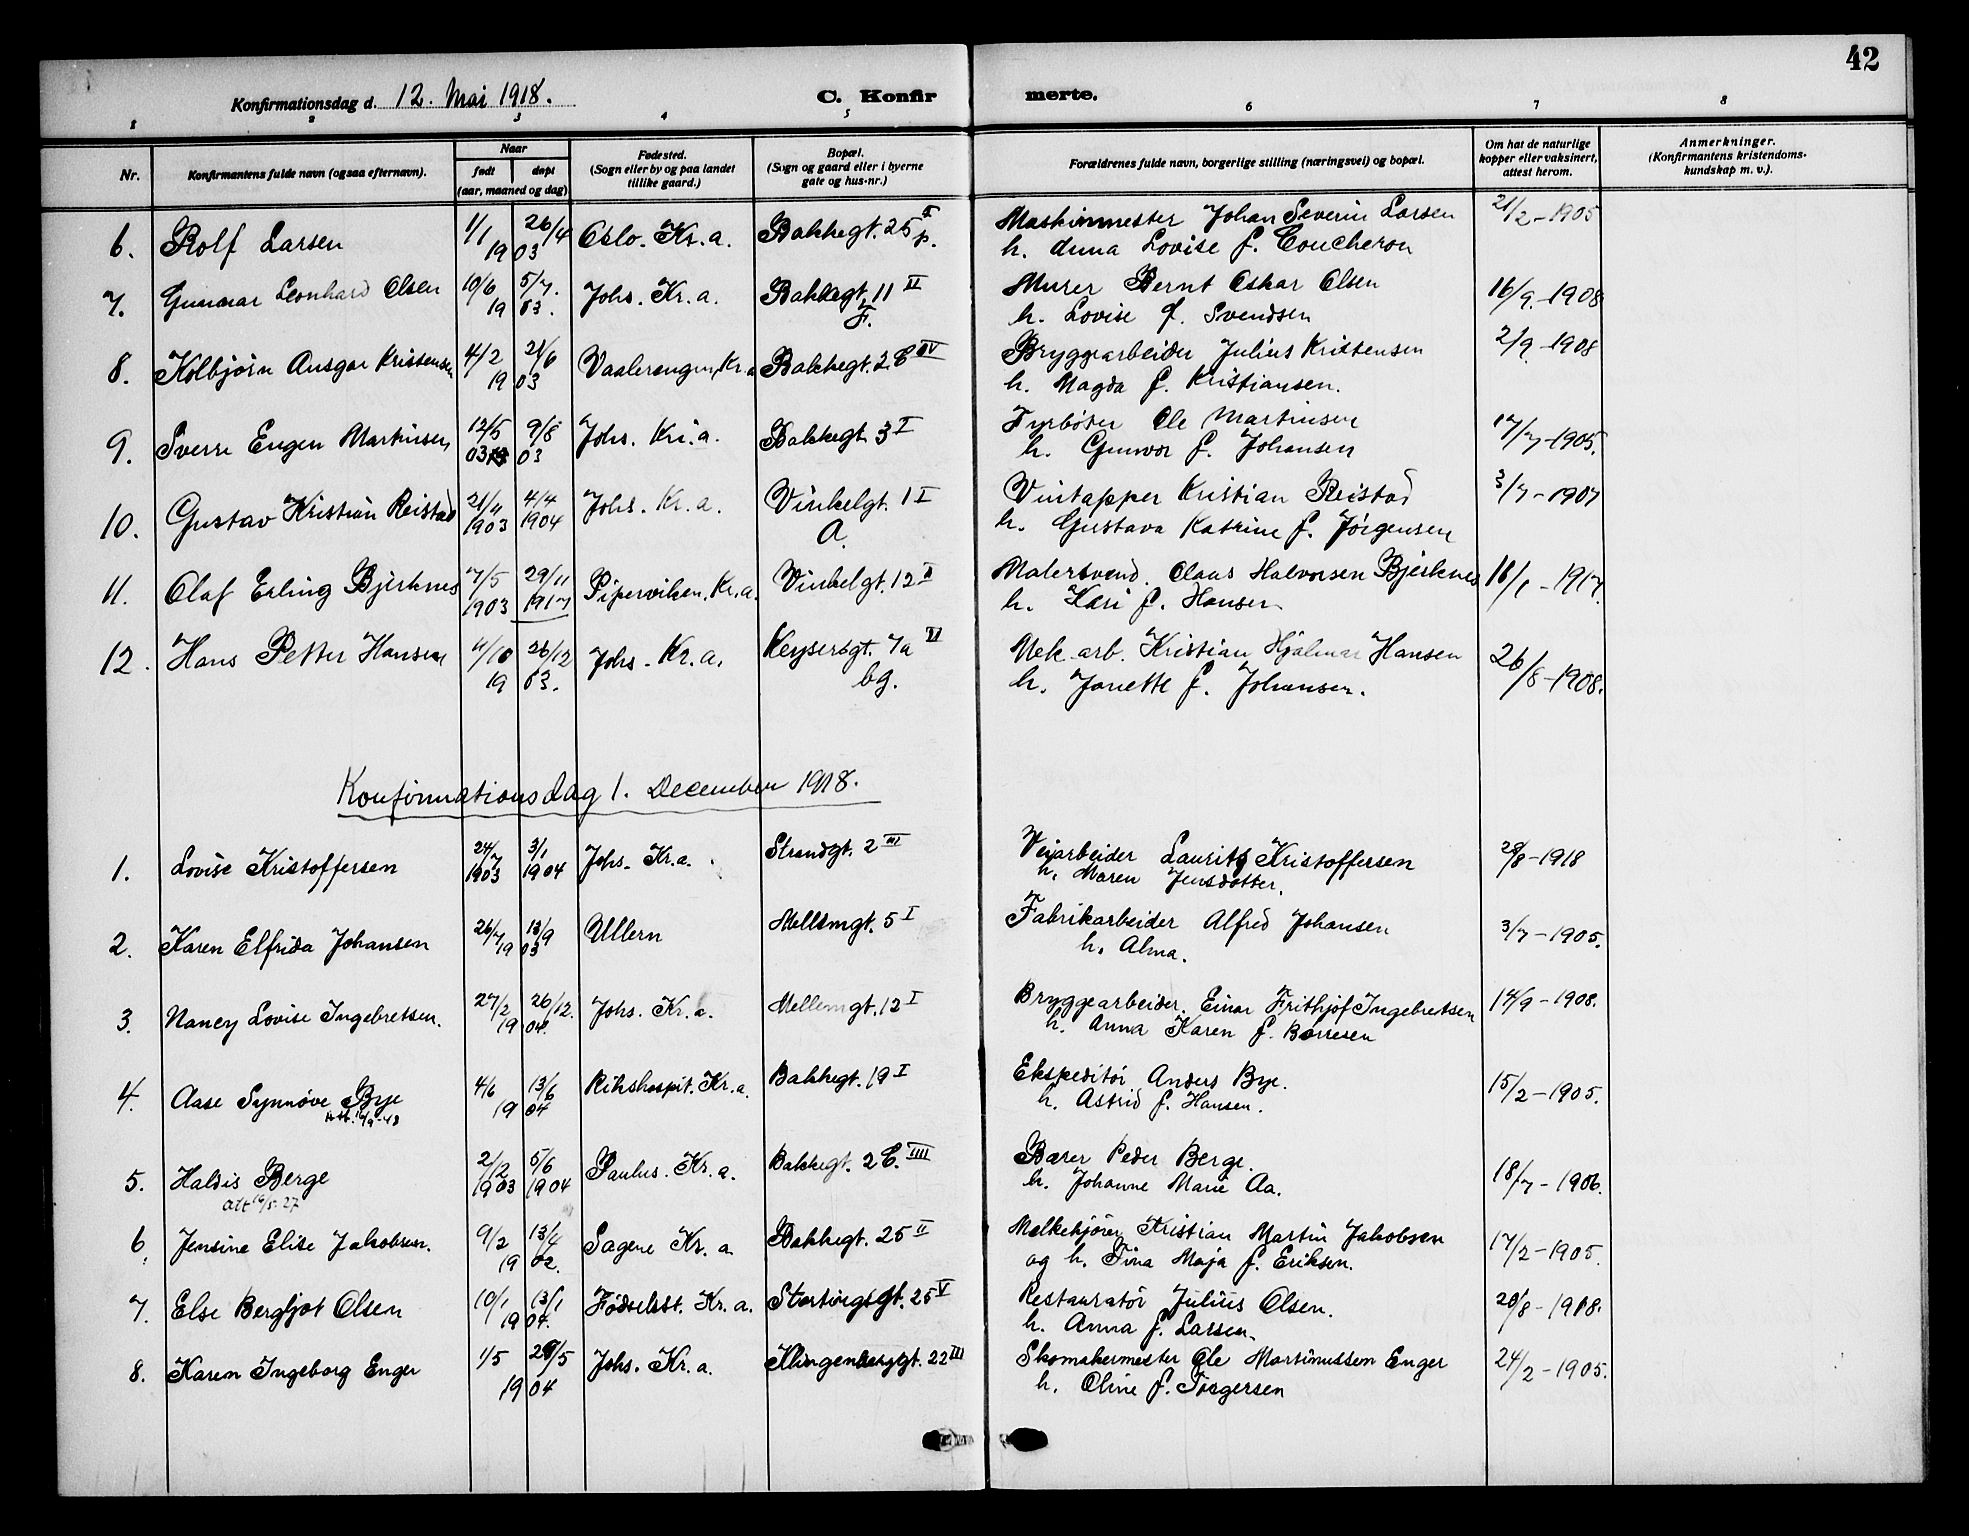 42
Konfirmationsdag d. 12. Mai 1918.
C. Konfirmerte.
1 2 3 4 5 6 7 8
Nr.
Konfirmantens fulde navn (ogsaa efternavn).
Naar
født døpt
(aar, maaned og dag)
Fødested.
(Sogn eller by og paa landet
tillike gaard.)
Bopæl.
(Sogn og gaard eller i byerne
gate og hus-nr.)
Forældrenes fulde navn, borgerlige stilling (næringsvei) og bopæl.
Om hat de naturlige
kopper eller vaksinert,
attest herom.
Anmerkninger.
(Konfirmantens kristendoms-
kundskap m. v.).
6. Rolf Larsen 1/1 26/4 1903 Oslo. Kr.a. Bakkegt. 25 II p. Maskinmester Johan Severin Larsen 21/2-1905
h. Anna Lovise f. Coucheron
7. Gunnar Leonhard Olsen 10/6 5/7. 1903. Johs. Kr.a. Bakkegt. 11 II F. Murer Bernt Oskar Olsen 16/9-1908
h. Lovise f. Svendsen
8. Kolbjørn Ansgar Kristensen 4/2 21/6 1903 Vaalerengen, Kr.a Bakkegt. 2 C IV Bryggearbeider Julius Kristensen 2/9-1908
h. Magda f. Kristiansen.
9. Sverre Eugen Martinsen 12/5 03 9/8 03 Johs. Kr.a. Bakkegt. 3 I Fyrbøter Ole Martinsen 17/7-1905.
h. Gunvor f. Johansen
10. Gustav Kristian Reistad 21/11 1903 4/4 1904 Johs. Kr.a. Vinkelgt. 1 I A. Vintapper Kristian Reistad 3/7-1907
h. Gustava Katrine f. Jørgensen
11. Olaf Erling Bjerknes 7/5 1903 29/11 1917 Piperviken. Kr.a. Vinkelgt. 12 II Malersvend. Claus Halvorsen Bjerknes 18/1-1917.
h. Kari f. Hansen
12. Hans Petter Hansen 4/10 26/12 1903. Johs. Kr.a. Keysersgt. 7a VI bg. Mek. arb. Kristian Hjalmar Hansen 26/8-1908.
h. Janette f. Johansen.
Konfirmationsdag 1. December 1918.
1. Lovise Kristoffersen 24/7 1903 3/1 1904 Johs. Kr.a. Strandgt. 2 III Veiarbeider Laurits Kristoffersen 28/8-1918
h. Maren Jensdatter.
2. Karen Elfrida Johansen 26/7 13/9 1903 Ullern Mellemgt. 5 I Fabrikarbeider Alfred Johansen 3/7-1905.
h. Alma.
3. Nancy Lovise Ingebretsen. 27/2 26/12. 1904 Johs. Kr.a. Mellemgt. 12 I Bryggearbeider. Einar Frithjof Ingebretsen 14/9-1908.
h. Anna Karen f. Børresen
4. Aase Synnøve Bye 4/6 13/6 1904 Rikshospit. Kr.a. Bakkegt. 19 I Ekspeditør Anders Bye. 15/2-1905.
h. Astrid f. Hansen.
5. Haldis Berge 2/12 1903 5/6 1904 Paulus. Kr.a. Bakkegt. 2 C. IIII Bærer Peder Berge. 18/7-1906.
Att 16/5.27
h. Johanne Marie Aa.
6. Jensine Elise Jakobsen. 9/2 13/4 1902. Sagene Kr.a Bakkegt. 25 II Melkekjører Kristian Martin Jakobsen 17/2-1905.
og h. Tina Maja f. Eriksen.
7. Else Bergljot Olsen 10/1 13/1 1904. Fødselsst. Kr.a. Stortingsgt. 25 V Restauratør Julius Olsen. 20/8-1918.
h. Anna f. Larsen.
8. Karen Ingeborg Enger 1/5 29/5 1904 Johs. Kr.a. Klingenberggt. 22 III Skomakermester Ole Martinussen Enger 24/2-1905.
h. Oline f. Torgersen